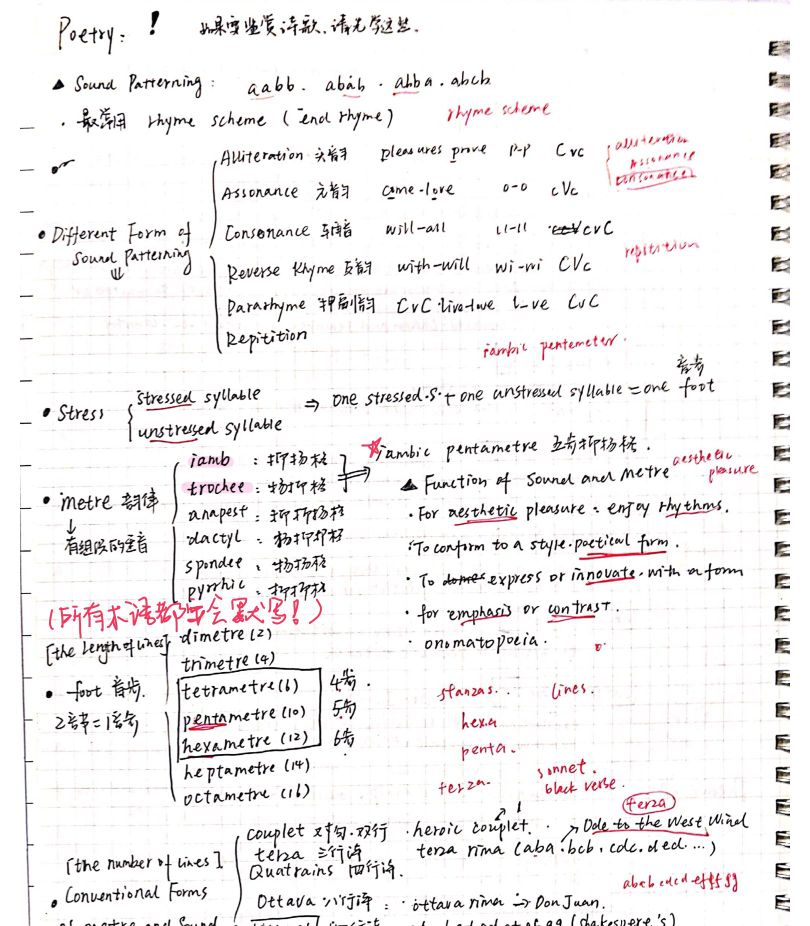 Poetry: ! 如果要鉴赏诗歌,请先学这些.
▲ Sound Patterning: aabb. abab. abba. abcb
· 最常用 rhyme scheme (end rhyme) rhyme scheme
or
Alliteration 头韵 pleasures prove p-p Cvc
alliteration
Assonance
consonance
Assonance 元韵 come-love o-o cVc
Consonance 辅音 will-all ll-ll cvC
• Different Form of Sound Patterning
Reverse Rhyme 反韵 with-will wi-wi CVc repitition
Pararhyme 押副韵 CvC live-love l-ve CvC
Repitition
iambic pentemeter.
• Stress
stressed syllable
unstressed syllable
⇒ one stressed.s.+ one unstressed syllable = one foot
音步
iamb : 抑扬格
trochee : 扬抑格
anapest : 抑抑扬格
dactyl : 扬抑抑格
spondee : 扬扬格
pyrrhic : 抑抑格
☆iambic pentametre 五步抑扬格.
• metre 韵律
↓
有组织的重音
▲ Function of Sound and Metre
aesthetic pleasure
· For aesthetic pleasure : enjoy rhythms.
· To conform to a style. poetical form.
· To express or innovate. with a form
· for emphasis or contrast.
· onomatopoeia.
(所有术语都要会默写!)
[the length of lines]
• foot 音步.
2音节=1音步
dimetre (2)
trimetre (4)
tetrametre (6) 4步.
pentametre (10) 5步
hexametre (12) 6步
heptametre (14)
octametre (16)
stanzas.. lines.
hexa
penta.
terza. sonnet.
black verse.
terza
[the number of lines].
• Conventional Forms
of metre and Sound
couplet 对句.双行 · heroic couplet. ↗ Ode to the West Wind
terza 三行诗 terza rima (aba.bcb.cdc.ded...)
Quatrains 四行诗.
ababcdcdefefgg
Ottava 八行诗 : ottava rima → Don Juan.
(Shakespere's)